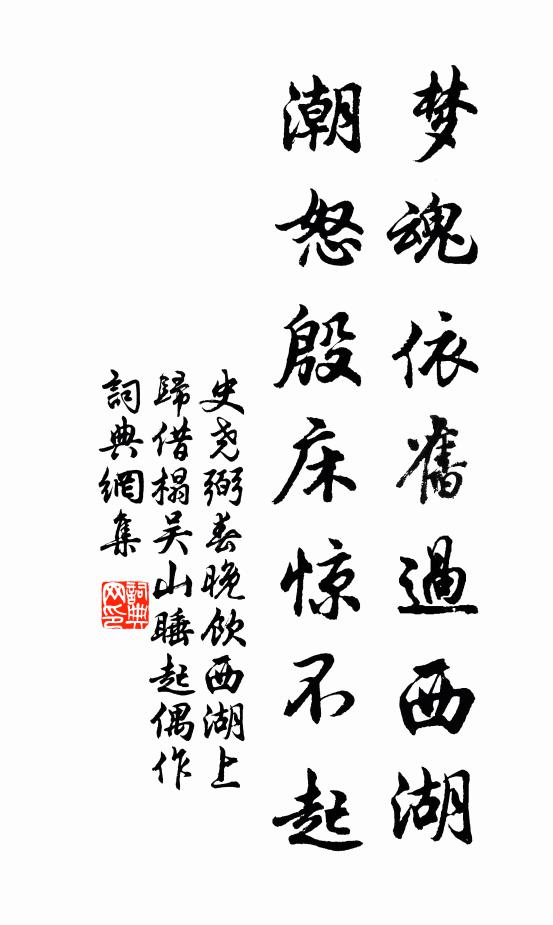 梦魂依舊過西湖
潮怒殷床惊不起
史尧弼春晚饮西湖上
歸借榻吴山睡起偶作
詞典網集
詞典網印